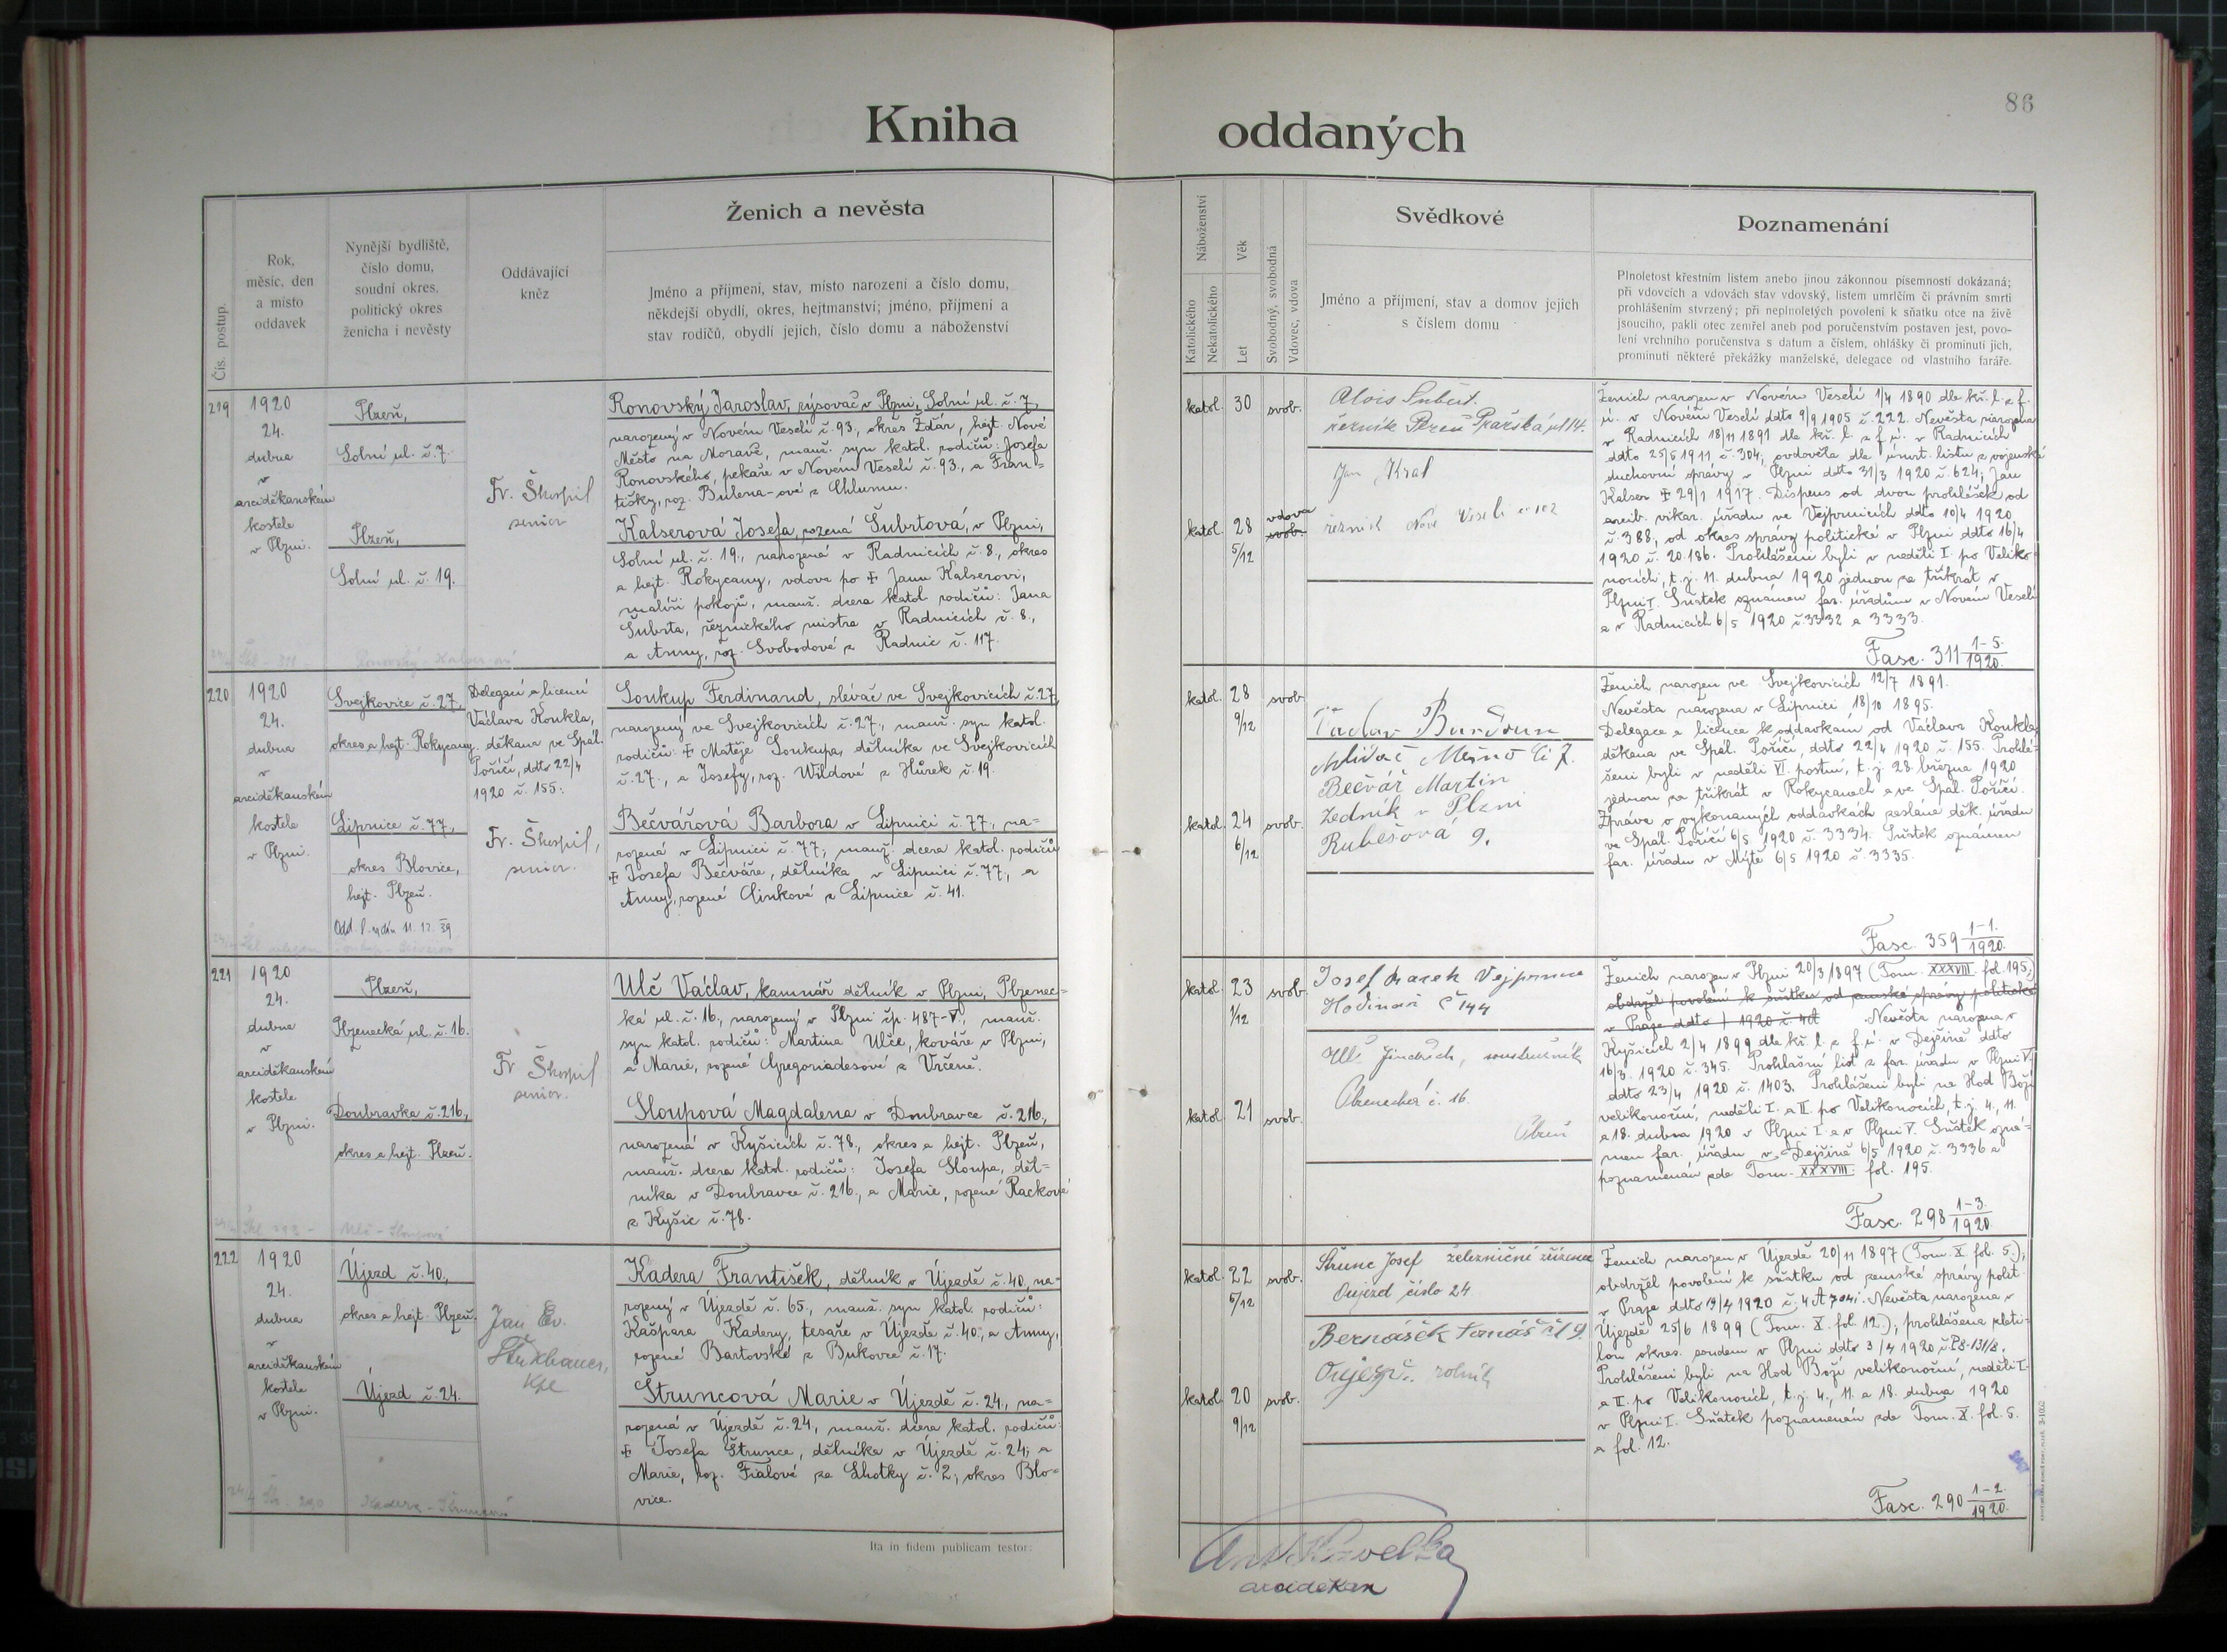 86
Kniha oddaných
Čís. postup.
Rok,
měsíc, den
a místo
oddavek
Nynější bydliště,
číslo domu,
soudní okres,
politický okres
ženicha i nevěsty
Oddávající
kněz
Ženich a nevěsta
Jméno a příjmení, stav, místo narození a číslo domu,
někdejší obydlí, okres, hejtmanství; jméno, příjmení a
stav rodičů, obydlí jejich, číslo domu a náboženství
Náboženství
Katolického
Nekatolického
Věk
Let
Svobodný, svobodná
Vdovec, vdova
Svědkové
Jméno a příjmení, stav a domov jejich
s číslem domu
Poznamenání
Plnoletost křestním listem anebo jinou zákonnou písemností dokázaná;
při vdovcích a vdovách stav vdovský, listem umrlčím či právním smrti
prohlášením stvrzený; při neplnoletých povolení k sňatku otce na živě
jsoucího, pakli otec zemřel aneb pod poručenstvím postaven jest, povo-
lení vrchního poručenstva s datum a číslem, ohlášky či prominutí jich,
prominutí některé překážky manželské, delegace od vlastního faráře.
219
1920
24.
dubna
v
arciděkanském
kostele
v Plzni.
Plzeň,
Solní ul. č. 7.
Plzeň,
Solní ul. č. 19.
Fr. Škospil
senior
Ronovský Jaroslav, rýsovač v Plzni, Solní ul. č. 7,
narozený v Novém Veselí č. 93., okres Žďár, hejt. Nové
Město na Moravě, manž. syn katol. rodičů: Josefa
Ronovského, pekaře v Novém Veselí č. 93., a Fran-
tišky, roz. Bulena-ové z Chlumu.
Kalserová Josefa, rozená Šubrtová, v Plzni,
Solní ul. č. 19., narozená v Radnicích č. 8., okres
a hejt. Rokycany, vdova po ✠ Janu Kalserovi,
malíři pokojů, manž. dcera katol. rodičů: Jana
Šubrta, řeznického mistra v Radnicích č. 8.,
a Anny, roz. Svobodové z Radnic č. 117.
katol. 30 svob.
katol. 28 5/12 vdova svob.
Alois Šubrt.
řezník Plzeň Pražská ul 14.
Jan Král
řezník Nové Veselí č. 102
Ženich narozen v Novém Veselí 1/4 1890 dle kř. l. z f.
ú. v Novém Veselí ddto 9/9 1905 č. 222. Nevěsta narozena
v Radnicích 18/11 1891 dle kř. l. z f. ú. v Radnicích
ddto 25/5 1911 č. 304, ovdověla dle úmrt. listu z vojenské
duchovní správy v Plzni ddto 31/3 1920 č. 624; Jan
Kalser ✠ 29/1 1917. Dispens od dvou prohlášek od
arcib. vikar. úřadu ve Vejprnicích ddto 10/4 1920
č. 388., od okres. správy politické v Plzni ddto 16/4
1920 č. 20.186. Prohlášeni byli v neděli I. po Veliko-
nocích, t. j. 11. dubna 1920 jednou za třikrát v
Plzni I. Sňatek oznámen far. úřadům v Novém Veselí
a v Radnicích 6/5 1920 č. 3332 a 3333.
Fasc. 311 1-5./1920.
220
1920
24.
dubna
v
arciděkanském
kostele
v Plzni.
Svejkovice č. 27,
okres a hejt. Rokycany.
Lipnice č. 77,
okres Blovice,
hejt. Plzeň.
Odd. l. vydán 11. 12. 39
Delegací a licencí
Václava Koukla,
děkana ve Spál.
Poříčí, ddto 22/4
1920 č. 155:
Fr. Škospil,
senior.
Soukup Ferdinand, slévač ve Svejkovicích č. 27,
narozený ve Svejkovicích č. 27., manž. syn katol.
rodičů: ✠ Matěje Soukupa, dělníka ve Svejkovicích
č. 27., a Josefy, roz. Wildové z Hůrek č. 19.
Bečvářová Barbora v Lipnici č. 77., na-
rozená v Lipnici č. 77, manž. dcera katol. rodičů
✠ Josefa Bečváře, dělníka v Lipnici č. 77., a
Anny, rozené Clinkové z Lipnice č. 41.
katol. 28 9/12 svob.
katol. 24 6/12 svob.
Bečvář Martin
Zedník v Plzni
Rubešová 9.
Ženich narozen ve Svejkovicích 12/7 1891.
Nevěsta narozena v Lipnici 18/10 1895.
Delegace a licence k oddavkám od Václava Koukla,
děkana ve Spál. Poříčí, ddto 22/4 1920 č. 155. Prohlá-
šeni byli v neděli VI. postní, t. j. 28. března 1920
jednou za třikrát v Rokycanech a ve Spál. Poříčí.
Zpráva o vykonaných oddavkách zaslána děk. úřadu
ve Spál. Poříčí 6/5 1920 č. 3334. Sňatek oznámen
far. úřadu v Mýtě 6/5 1920 č. 3335.
Fasc. 359 1-1./1920.
221
1920
24.
dubna
v
arciděkanském
kostele
v Plzni.
Plzeň,
Plzenecká ul. č. 16.
Doubravka č. 216,
okres a hejt. Plzeň.
Fr. Škospil
senior.
Ulč Václav, kamnář dělník v Plzni, Plzenec-
ká ul. č. 16., narozený v Plzni čp. 487-V., manž.
syn katol. rodičů: Martina Ulče, kováře v Plzni,
a Marie, rozené Gregoriadesové z Vrčeně.
Sloupová Magdalena v Doubravce č. 216,
narozená v Kyšicích č. 78., okres a hejt. Plzeň,
manž. dcera katol. rodičů: Josefa Sloupa, děl-
níka v Doubravce č. 216., a Marie, rozené Rackové
z Kyšic č. 78.
katol. 23 1/12 svob.
katol. 21 svob.
Josef Marek Vejprnice
Hodinář č 144
Ulč Jindřich, soustružník
Plzenecká č. 16.
Plzeň
Ženich narozen v Plzni 20/3 1897 (Tom. XXXVIII. fol. 195.)
obdržel povolení k sňatku od zemské správy politické
v Praze ddto / 1920 č. 4A Nevěsta narozena v
Kyšicích 2/4 1899 dle kř. l. z f. ú. v Dejšině ddto
16/3. 1920 č. 345. Prohlašní list z far. úřadu v Plzni V.
ddto 23/4 1920 č. 1403. Prohlášeni byli na Hod Boží
velikonoční, neděli I. a II. po Velikonocích, t. j. 4., 11.
a 18. dubna 1920 v Plzni I. a v Plzni V. Sňatek ozná-
men far. úřadu v Dejšině 6/5 1920 č. 3336 a
poznamenán zde Tom. XXXVIII. fol. 195.
Fasc. 298 1-3./1920.
222
1920
24.
dubna
v
arciděkanském
kostele
v Plzni.
Újezd č. 40,
okres a hejt. Plzeň.
Újezd č. 24.
Jan Ev.
Kpl
Kadera František, dělník v Újezdě č. 40, na-
rozený v Újezdě č. 65., manž. syn katol. rodičů:
Kašpara Kadery, tesaře v Újezdě č. 40, a Anny,
rozené Bartovské z Bukovce č. 17.
Štruncová Marie v Újezdě č. 24., na-
rozená v Újezdě č. 24, manž. dcera katol. rodičů:
✠ Josefa Štrunce, dělníka v Újezdě č. 24; a
Marie, roz. Fialové ze Lhotky č. 2, okres Blo-
vice.
katol. 22 5/12 svob.
katol. 20 9/12 svob.
Štrunc Josef železniční zřízenec
Oujezd číslo 24
Bernášek Tomáš č 19
Oujezd. rolník
Ženich narozen v Újezdě 20/11 1897 (Tom. X. fol. 5.),
obdržel povolení k sňatku od zemské správy polit.
v Praze ddto 19/4 1920 č. 4 A 704i. Nevěsta narozena v
Újezdě 25/6 1899 (Tom. X. fol. 12.); prohlášena zleti-
lou okres. soudem v Plzni ddto 3/4 1920 č. P8-131/8.
Prohlášeni byli na Hod Boží velikonoční, neděli I.
a II. po Velikonocích, t. j. 4., 11. a 18. dubna 1920
v Plzni I. Sňatek poznamenán zde Tom. X. fol. 5.
a fol. 12.
Fasc. 290 1-2./1920.
Ita in fidem publicam testor:
arciděkan